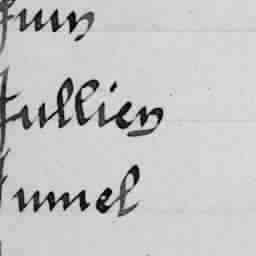 Juin
Jullien
Jumel